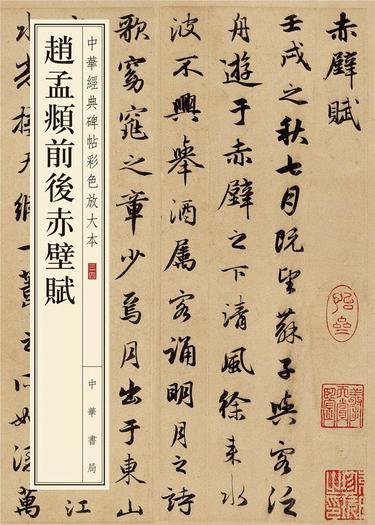 赤壁賦
壬戌之秋七月既望蘇子與客泛
舟遊于赤壁之下清風徐來水
波不興舉酒屬客誦明月之詩
歌窈窕之章少焉月出于東山
江
中華經典碑帖彩色放大本
趙孟頫前後赤壁賦
中華書局
水光接天縱一葦之所如淩萬